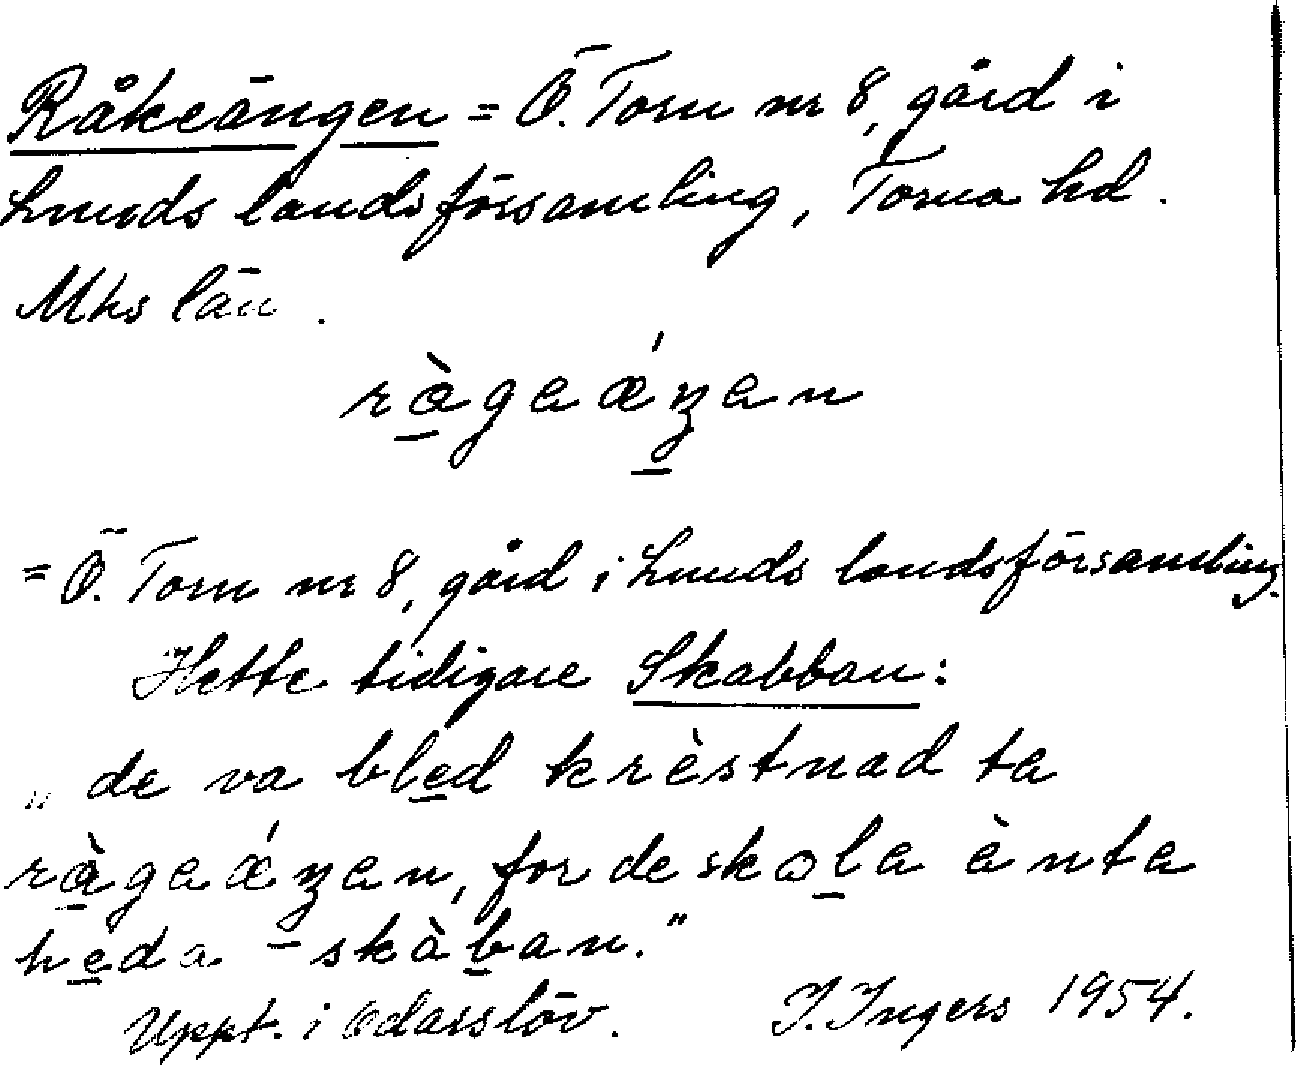 Råkeängen = Ö. Torn nr 8, gård i
Lunds landsförsamling, Torna hd.
Mhs län.
rågaǽŋan
= Ö. Torn nr 8, gård i Lunds landsförsamling.
Hette tidigare Skabban:
„ de va bled krèstnad ta
rågaǽŋan, for de skola ènta
heda – skàban."
Uppt. i Odarslöv. I. Ingers 1954.